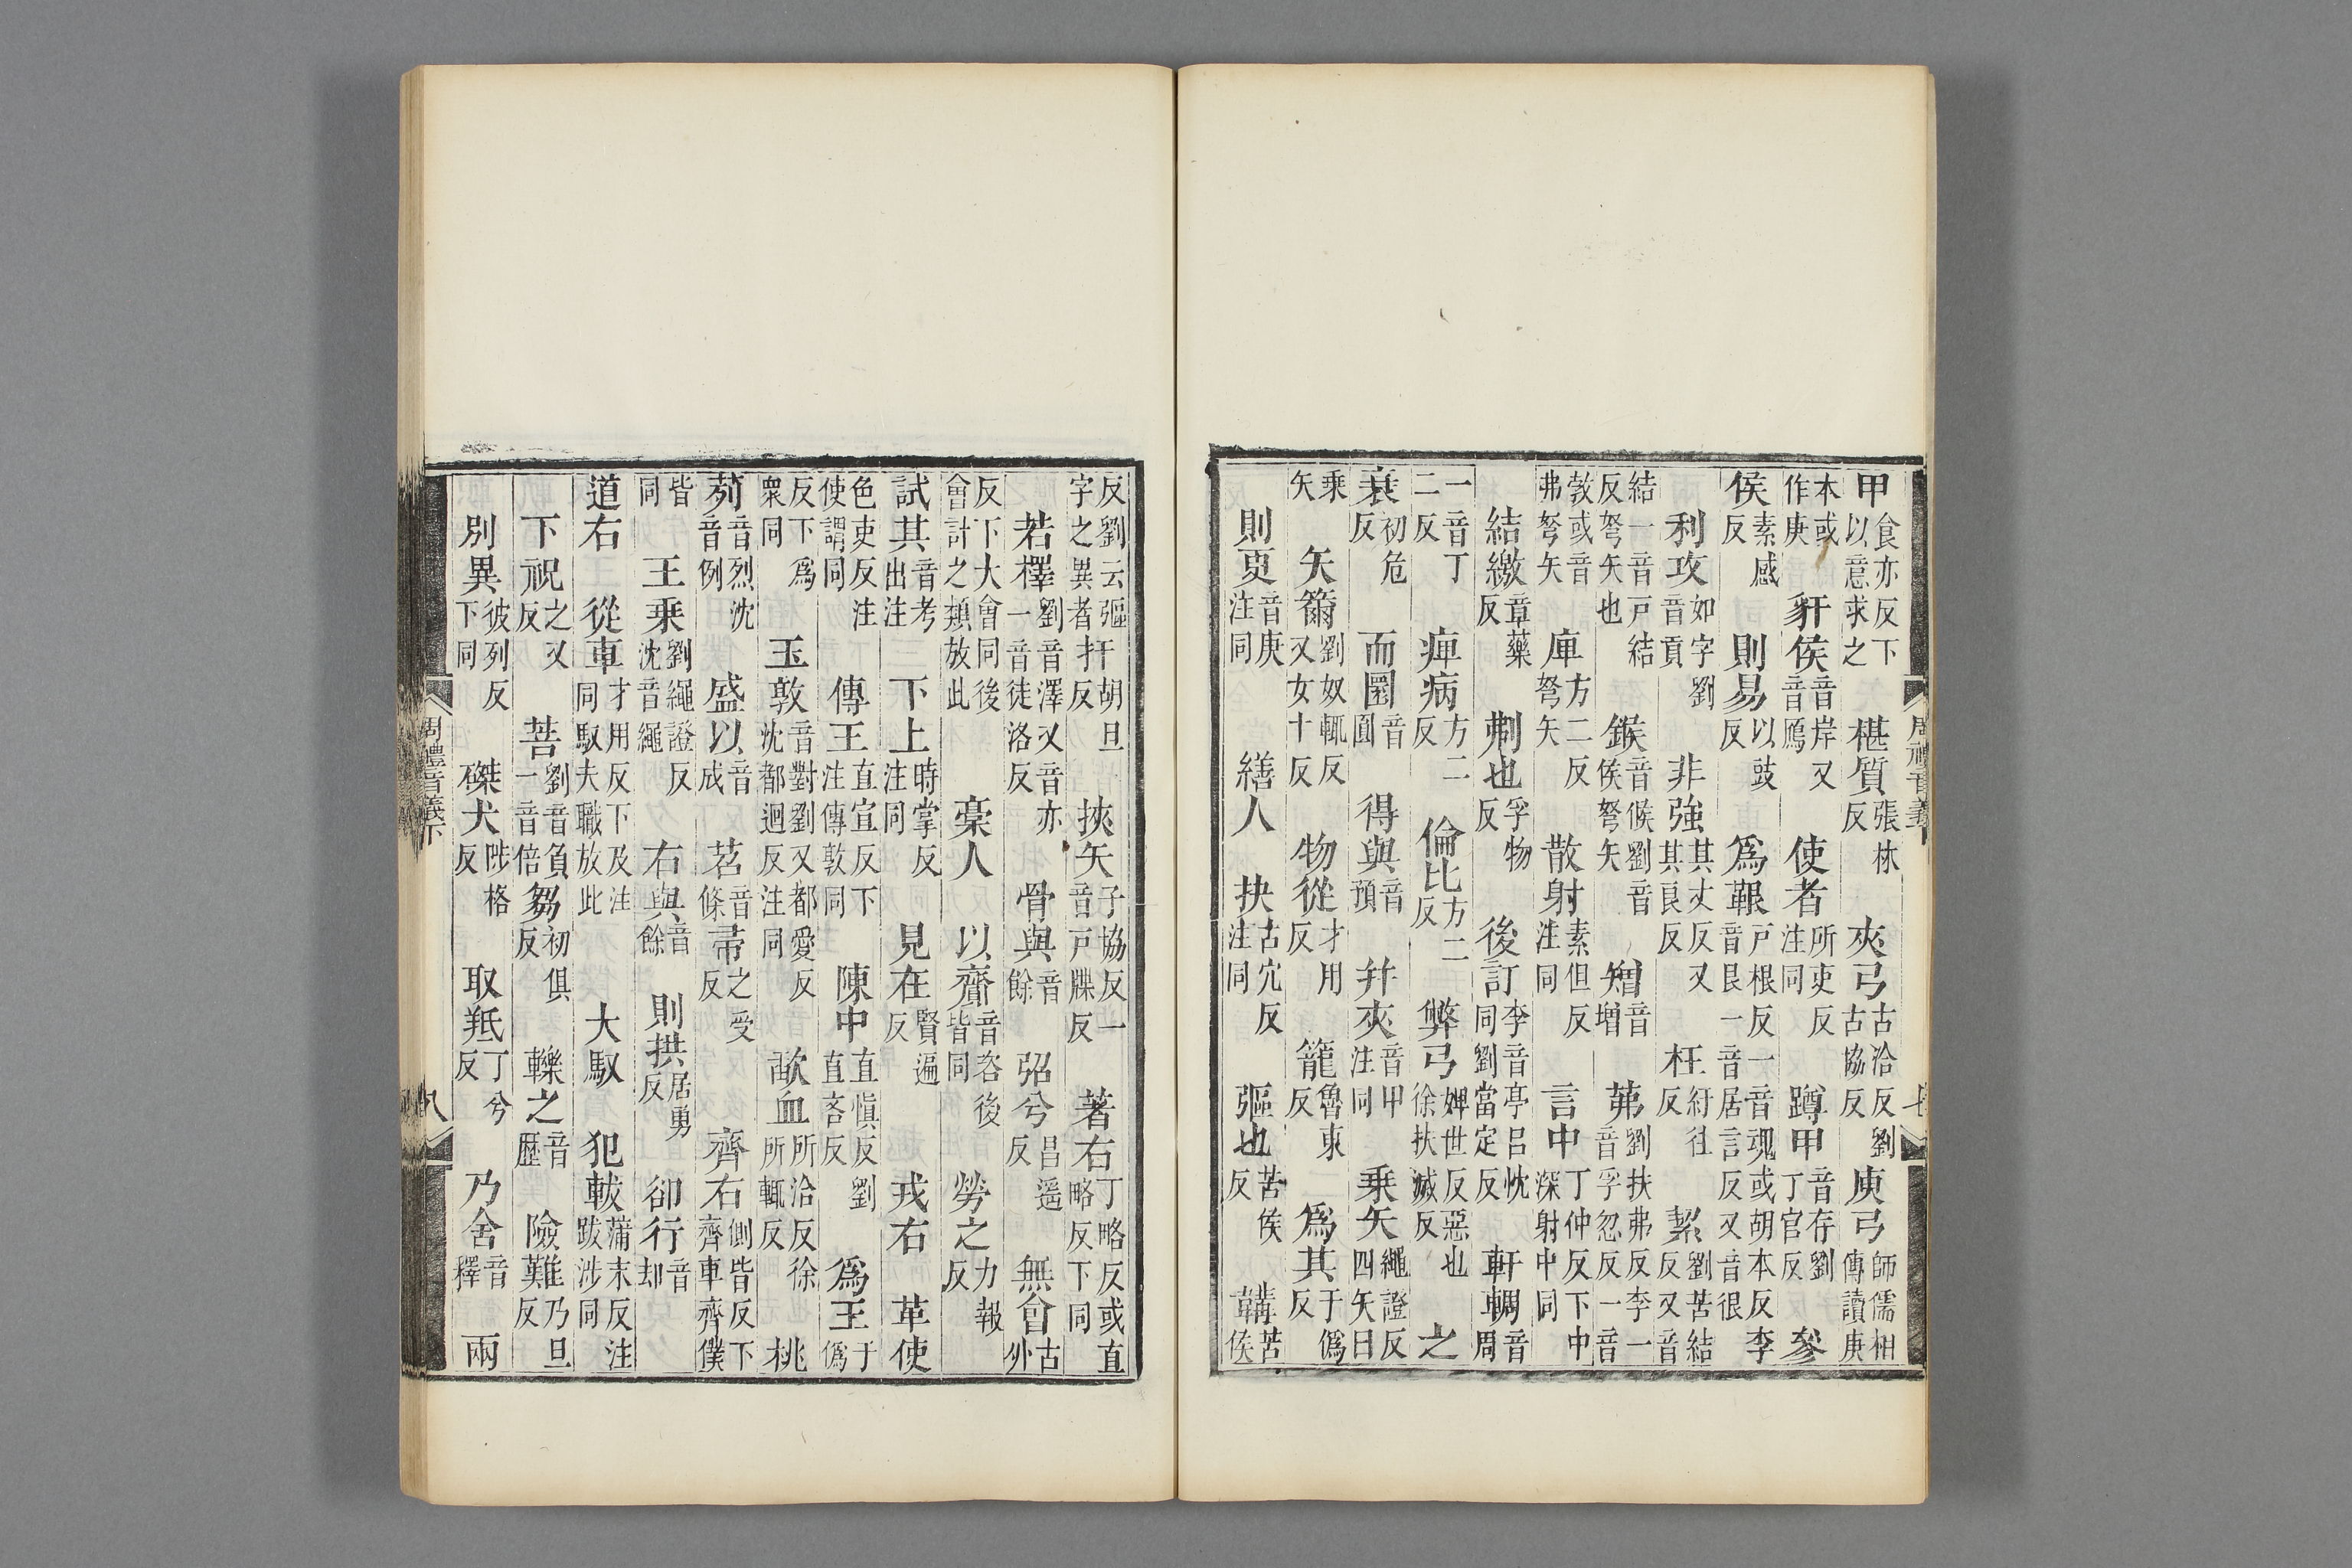 甲食亦反下以意求之 椹質張林反 夾弓古洽反劉古協反 庾弓師儒相傳讀庾
本或作庚 豻侯音岸又音鴈 使者所吏反注同 蹲甲音存劉丁官反 參
侯素感反 則易以豉反 爲艱戸根反一音艮一音魂或胡本反李音居言反又音很
利攻如字劉音貢 非強其丈反又其良反 枉紆往反 絜劉苦結反又音
結一音戸結反弩矢也 鍭音候劉音侯弩矢 矰音增 茀劉扶弗反李一音孚忽反一音
敦或音弗弩矢 庳方二反弩矢 散射素但反注同 言中丁仲反下中深射中同
結繳章藥反 刜也孚物反 後訂李音亭呂忱同劉當定反 軒輖音周
一音丁二反 痺病方二反 倫比方二反 弊弓婢世反惡也徐扶滅反 之
衰初危反 而圜音圓 得與音預 幷夾音甲注同 乗矢繩證反四矢曰
乗矢 矢箙劉奴輒反又女十反 物從才用反 籠魯東反 爲其于僞反
則更音庚注同 繕人 抉古宂反注同 彄也苦侯反 韝苦侯
反劉云彄字之異者 扞胡旦反 挾矢子協反一音戸牒反 著右丁略反或直略反下同
若檡劉音澤又音亦一音徒洛反 骨與音餘 弨兮昌遥反 無會古外
反下大會同後會計之類放此 槀人 以齎音咨後皆同 勞之力報反
試其音考出注 下上時掌反注同 見在賢遍反 戎右 革使
色吏反注使謂同 傳王直宣反下注傳敦同 陳中直愼反劉直吝反 爲王于僞
反下爲衆同 玉敦音對劉又都愛反沈都迴反注同 歃血所洽反徐所輒反 桃
茢音烈沈音例 盛以音成 苕音條 帚之受反 齊右側皆反下齊車齊僕
皆同 王乗劉繩證反沈音繩 右與音餘 則拱居勇反 卻行音却
道右 從車才用反下及注同馭夫職放此 大馭 犯軷蒲末反注跋涉同
下祝之又反 菩劉音負一音倍 芻初俱反 轢之音歷 險難乃旦反
別異彼列反下同 磔犬陟格反 取羝丁兮反 乃舍音釋 兩
周禮音義下
八